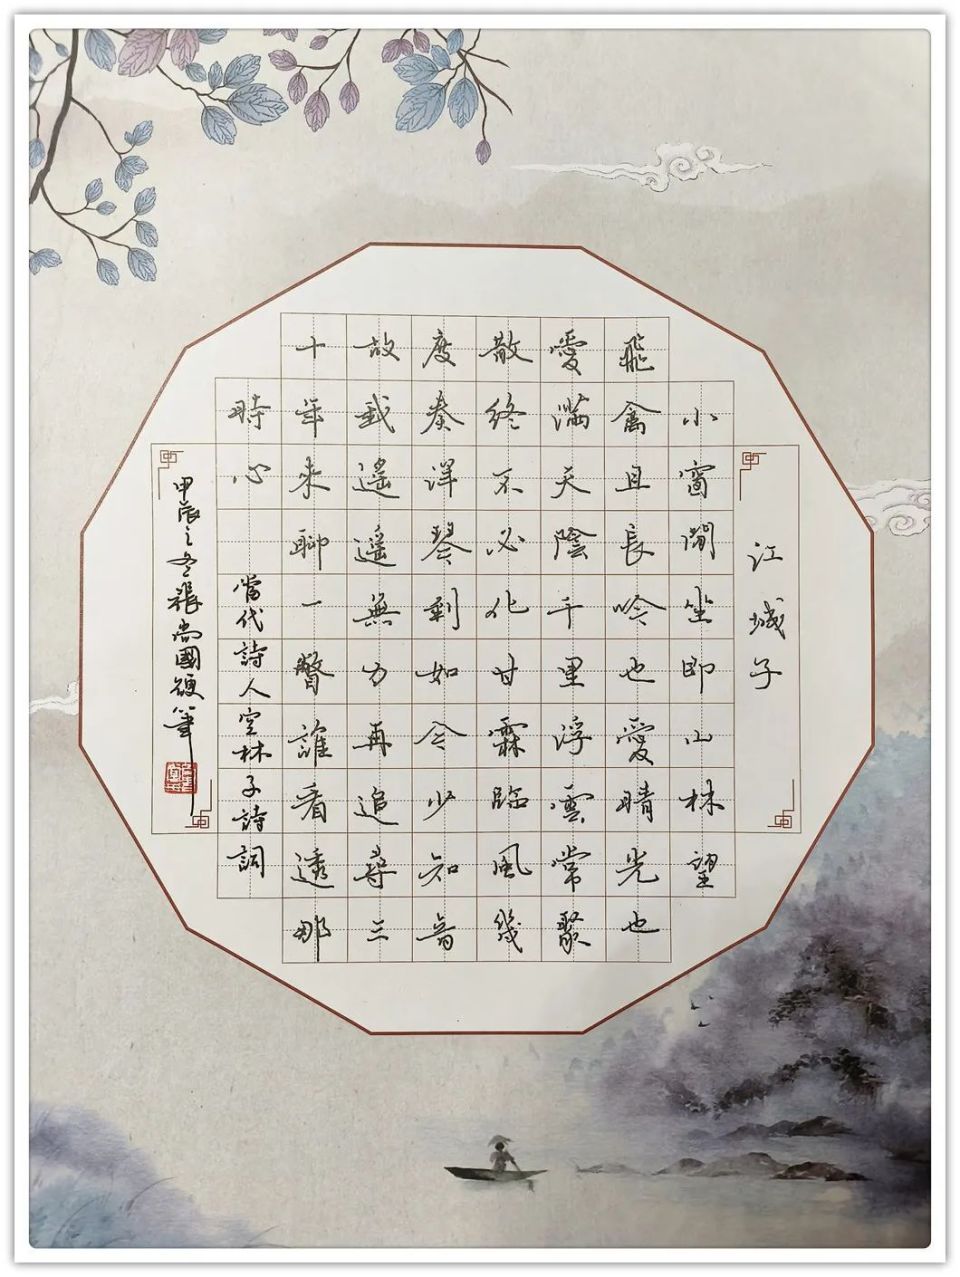 江城子
小窗閒坐即山林望
飛禽且長吟也愛晴光也
愛滿天陰千里浮雲常聚
散終不必化甘霖臨風幾
度奏洋琴剩如今少知音
故我遙遙無力再追尋三
十年來聊一瞥誰看透那
時心
當代詩人空林子詩詞
甲辰之冬張尚國硬筆